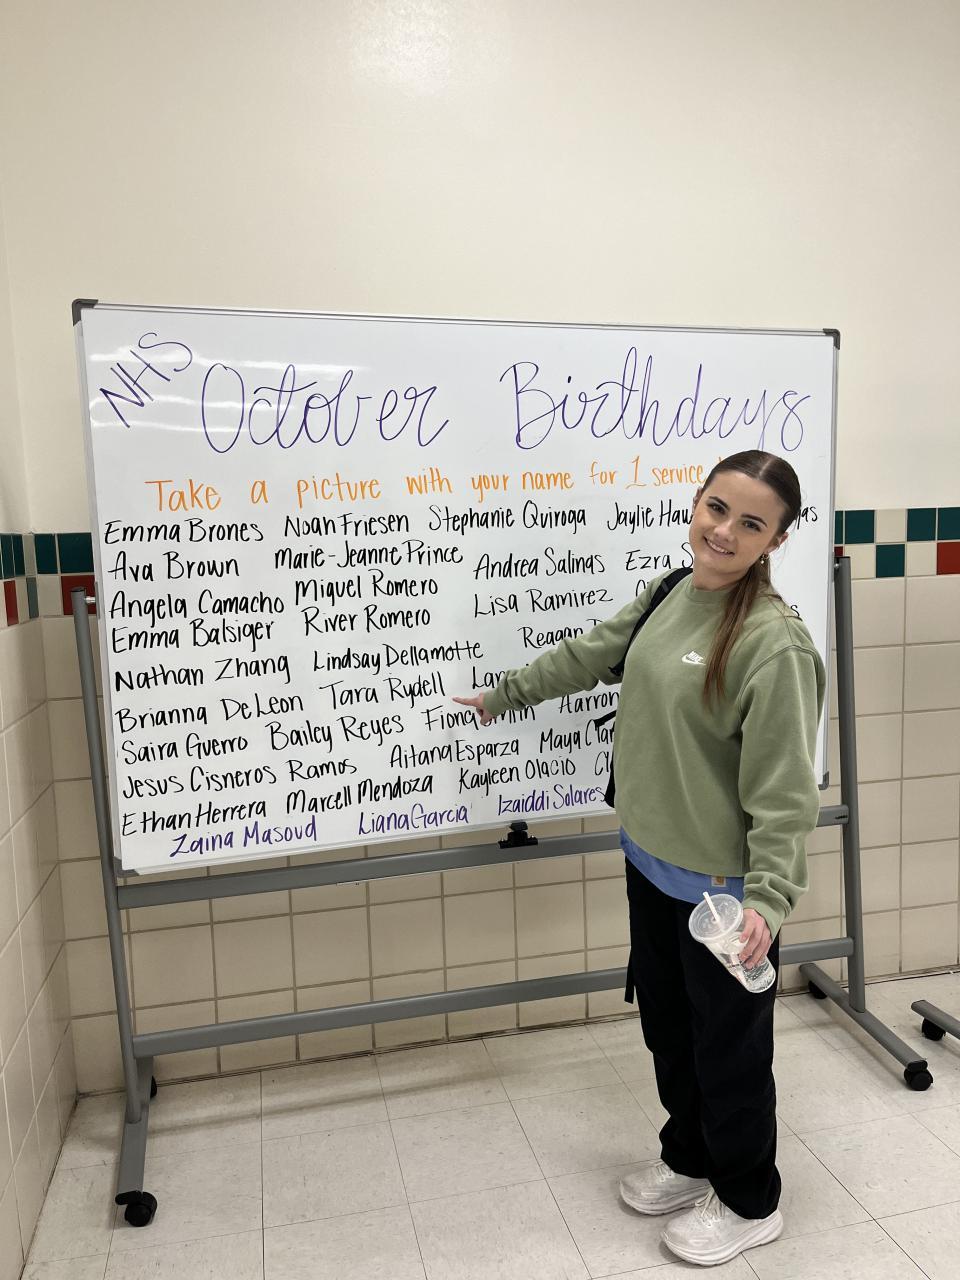 NHS
October Birthdays
Take a picture with your name for 1 service
Emma Brones Noah Friesen Stephanie Quiroga Jaylie
Ava Brown Marie-Jeanne Prince Andrea Salinas Ezra
Angela Camacho Miguel Romero Lisa Ramirez
Emma Balsiger River Romero Reagan
Nathan Zhang Lindsay Dellamotte
Brianna DeLeon Tara Rydell
Saira Guerro Bailey Reyes Fiona Smith Aarron
Jesus Cisneros Ramos Aitana Esparza Maya
Ethan Herrera Marcell Mendoza Kayleen Olacio
Zaina Masoud Liana Garcia Izaiddi Solares